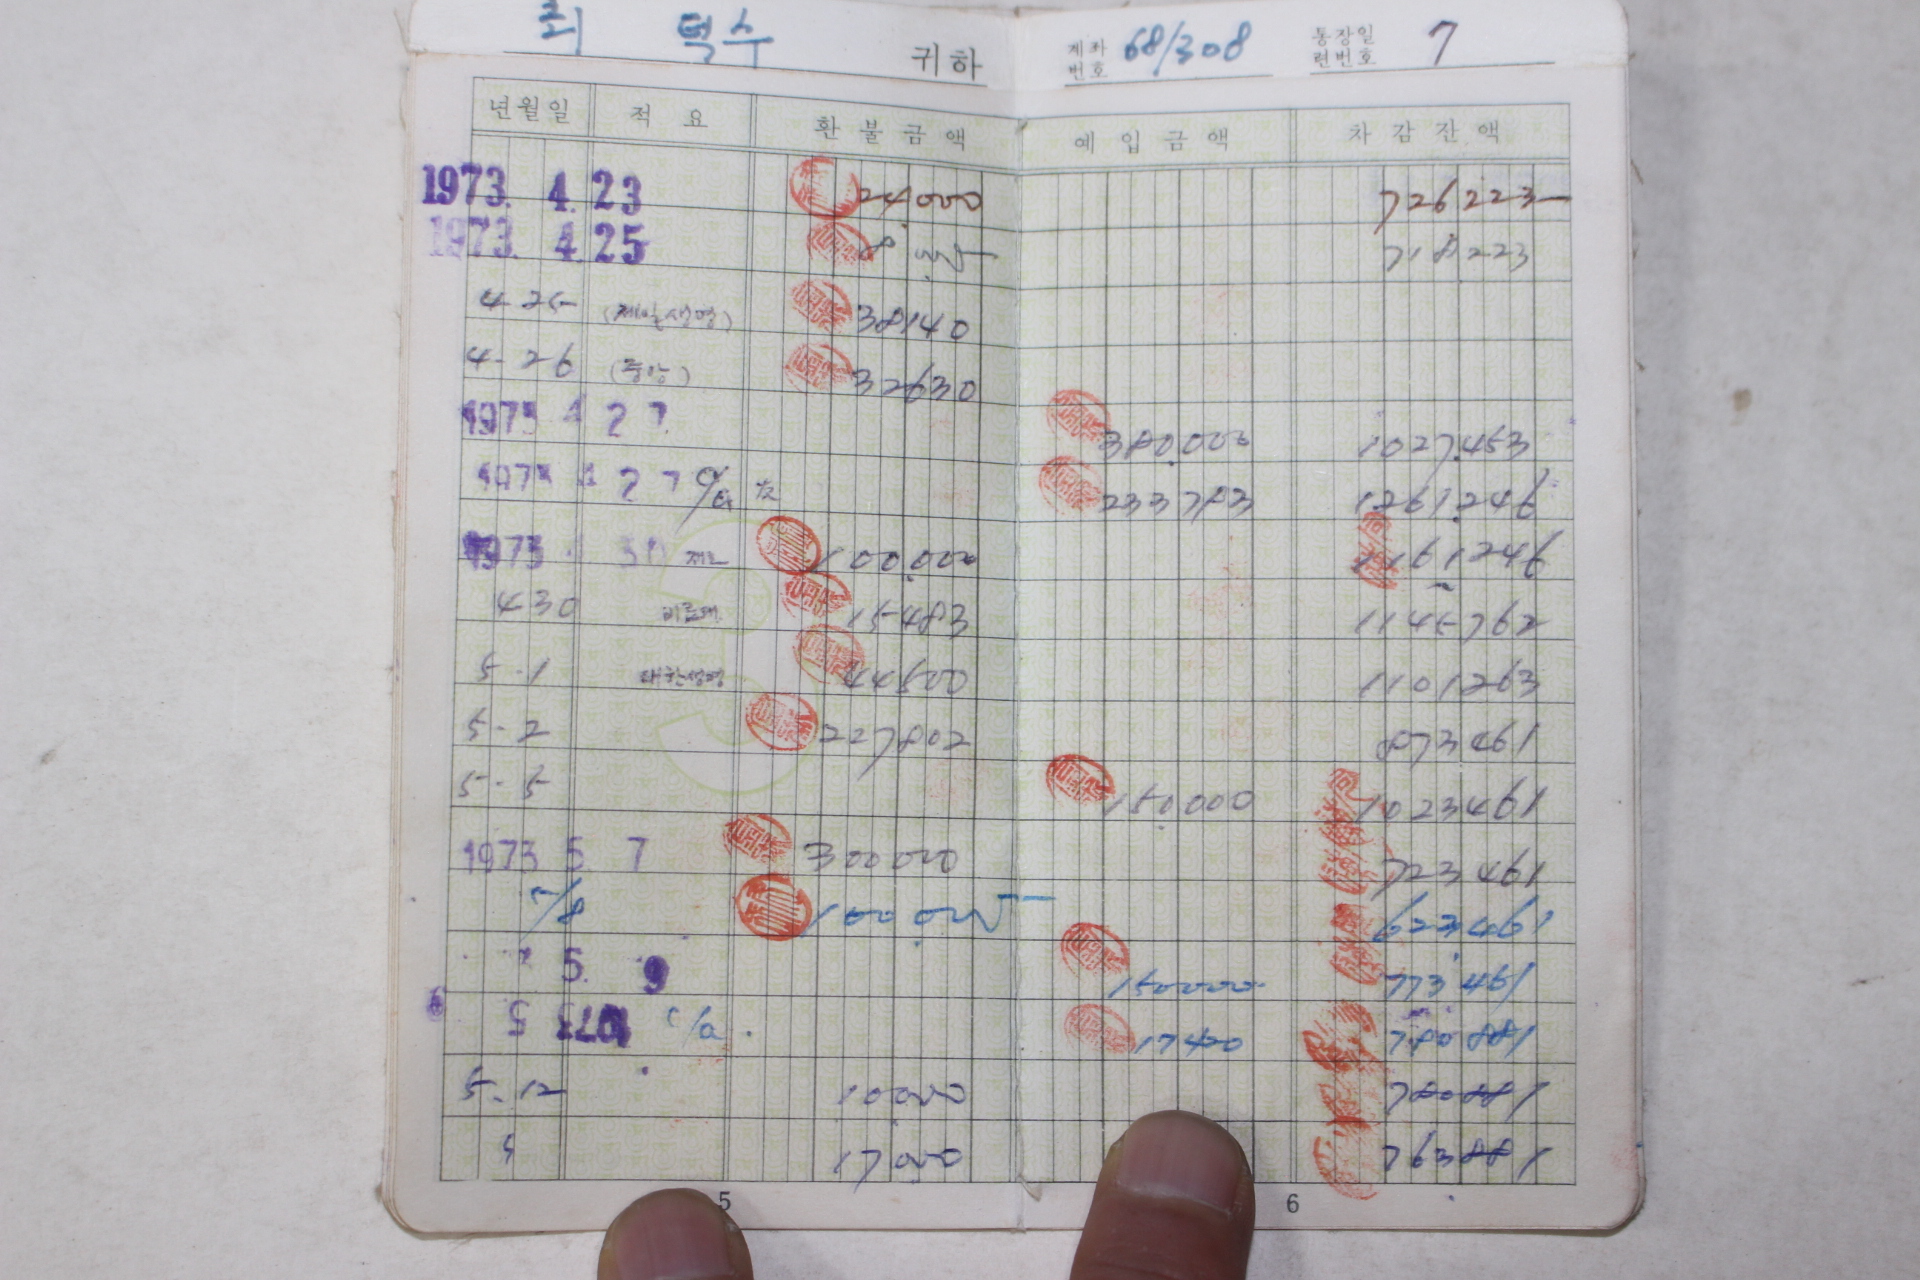 최 덕수 귀하 계좌번호 68/308 통장일련번호 7
년월일 적요 환불금액 예입금액 차감잔액
1973. 4. 23 24000 726223
1973. 4. 25 8 718223
4-25 (제일생명) 38140
4-26 (중앙) 32630
1973 4 27 380.000 1027.453
1973 4 27 233793 1261.246
1973 30 100.000 1161246
430 15483 1145762
5-1 대한생명 44500 1101263
5-2 227802 873461
5-5 150000 1023461
1973 5 7 300000 723461
5/8 100000 623461
5. 9 150000 773461
5 1973 C/a. 17400 790881
5-12 10000 780881
5 17000 763881
5 6